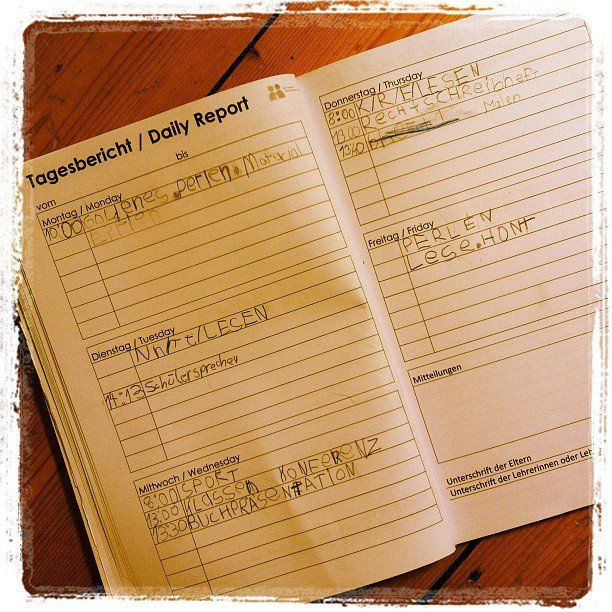 Tagesbericht / Daily Report
vom bis
Montag / Monday
10:00 GOLDENES PERLEN MATERIAL
Dienstag / Tuesday
/LESEN
14:13 Schülersprecher
Mittwoch / Wednesday
8:00 SPORT
13:00 KLASSEN KONFERENZ
13:30 BUCHPRÄSENTATION
Donnerstag / Thursday
8:00 K/R/F/LESEN
13:00 RechtSchreibheft
13:40 Malen
Freitag / Friday
PERLEN
Lese.HONT
Mitteilungen
Unterschrift der Eltern
Unterschrift der Lehrerinnen oder